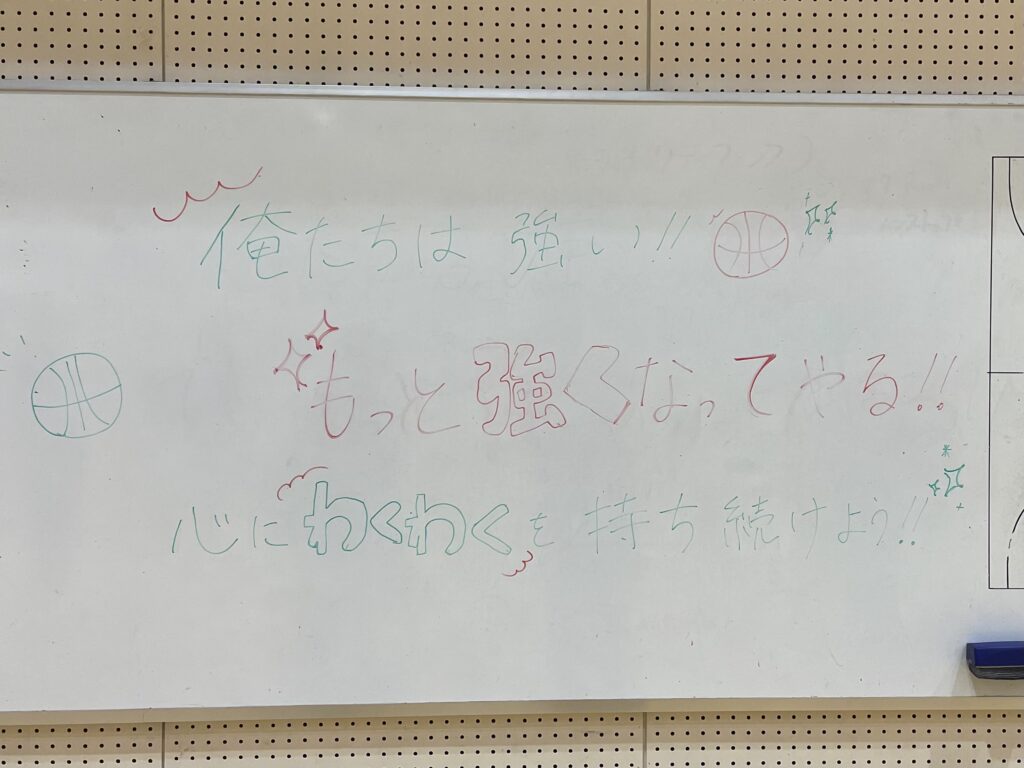 俺たちは 強い!!
もっと強くなってやる!!
心にわくわくを持ち続けよう!!